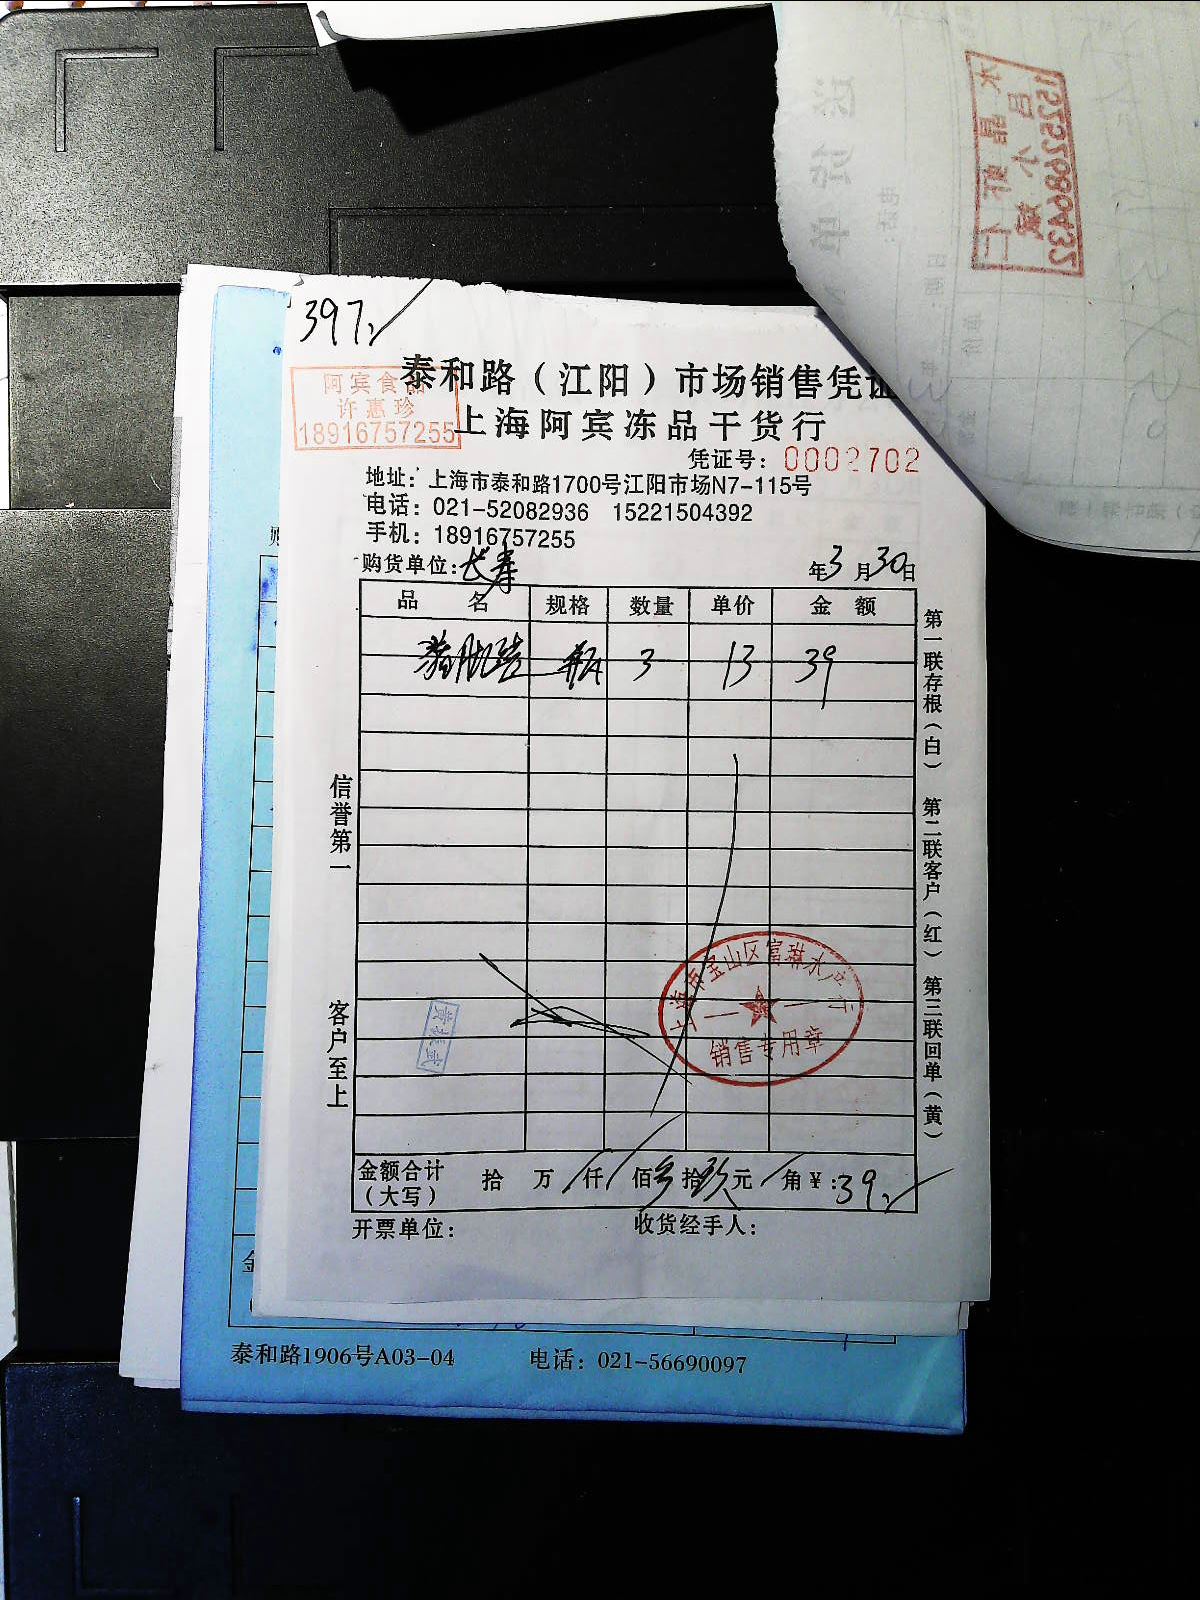 397
泰和路（江阳）市场销售凭证
阿宾食品
许惠珍
18916757255
上海阿宾冻品干货行
凭证号：0002702
地址：上海市泰和路1700号江阳市场N7-115号
电话：021-52082936 15221504392
手机：18916757255
购货单位：长寿 年3月30日
品名 规格 数量 单价 金额
瓶 3 13 39
信誉第一
客户至上
第一联存根（白） 第二联客户（红） 第三联回单（黄）
上海市宝山区富琳水产行
销售专用章
金额合计（大写） 拾 万 仟 佰 叁拾玖元 角 ¥：39
开票单位： 收货经手人：
泰和路1906号A03-04 电话：021-56690097
15252686432